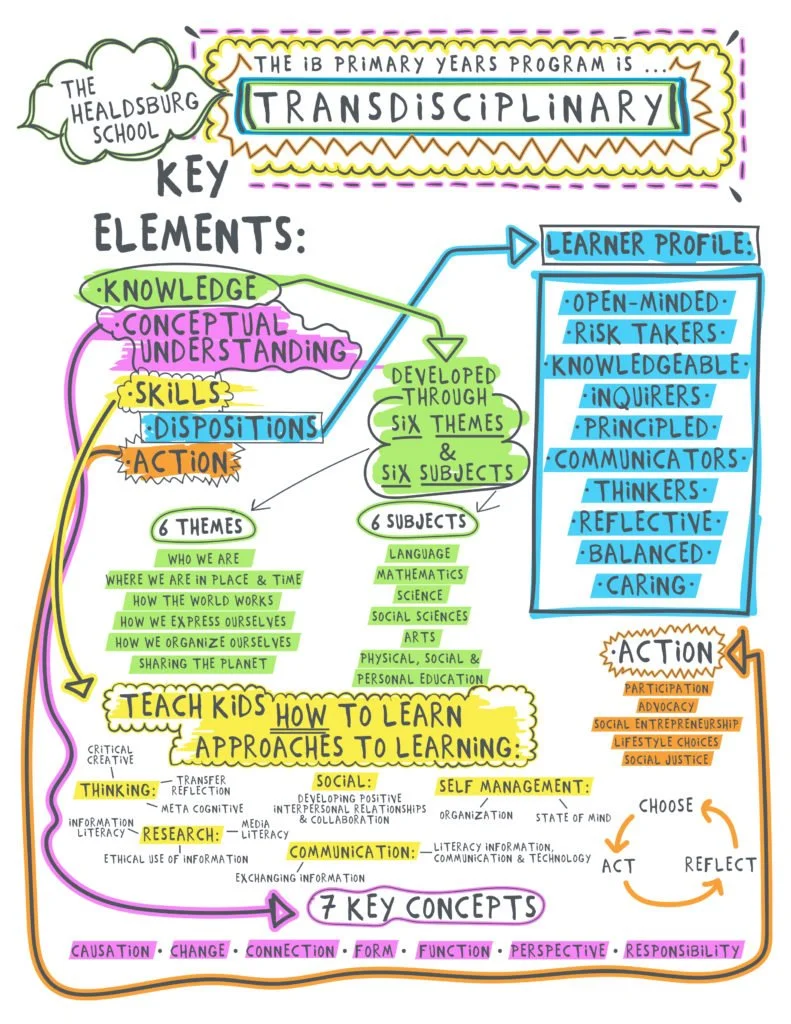 THE
HEALDSBURG
SCHOOL
THE iB PRIMARY YEARS PROGRAM iS ...
TRANSDiSCiPLiNARY
KEY
ELEMENTS:
·KNOWLEDGE
·CONCEPTUAL
UNDERSTANDiNG
·SKiLLS
·DiSPOSiTiONS
·ACTiON
DEVELOPED
THROUGH
SiX THEMES
&
SiX SUBJECTS
LEARNER PROFiLE:
·OPEN-MiNDED·
·RiSK TAKERS·
·KNOWLEDGEABLE·
·iNQUiRERS·
·PRiNCiPLED·
·COMMUNiCATORS·
·THiNKERS·
·REFLECTiVE·
·BALANCED·
·CARiNG·
6 THEMES
WHO WE ARE
WHERE WE ARE iN PLACE & TiME
HOW THE WORLD WORKS
HOW WE EXPRESS OURSELVES
HOW WE ORGANiZE OURSELVES
SHARiNG THE PLANET
6 SUBJECTS
LANGUAGE
MATHEMATiCS
SCiENCE
SOCiAL SCiENCES
ARTS
PHYSiCAL, SOCiAL &
PERSONAL EDUCATiON
·ACTiON·
PARTiCiPATiON
ADVOCACY
SOCiAL ENTREPRENEURSHiP
LiFESTYLE CHOiCES
SOCiAL JUSTiCE
CHOOSE
ACT
REFLECT
TEACH KiDS HOW TO LEARN
APPROACHES TO LEARNiNG:
CRiTiCAL
CREATiVE
THiNKiNG:
TRANSFER
REFLECTiON
META COGNiTiVE
SOCiAL:
DEVELOPiNG POSiTiVE
iNTERPERSONAL RELATiONSHiPS
& COLLABORATiON
SELF MANAGEMENT:
ORGANiZATiON
STATE OF MiND
iNFORMATiON
LiTERACY
RESEARCH:
MEDiA
LiTERACY
ETHiCAL USE OF iNFORMATiON
COMMUNiCATiON:
LiTERACY iNFORMATiON,
COMMUNiCATiON & TECHNOLOGY
EXCHANGiNG iNFORMATiON
7 KEY CONCEPTS
CAUSATiON · CHANGE · CONNECTiON · FORM · FUNCTiON · PERSPECTiVE · RESPONSiBiLiTY